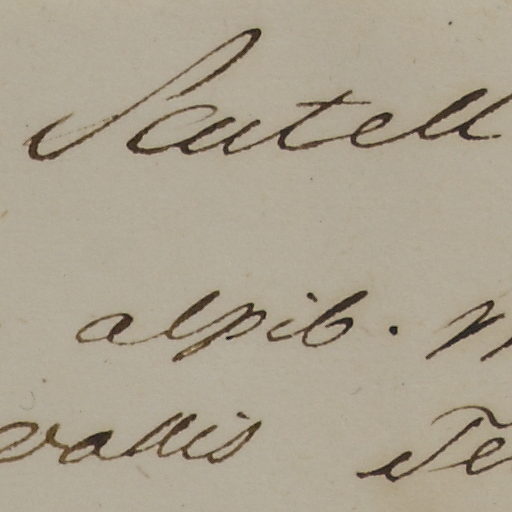 Scutell
alpib.
vallis Te